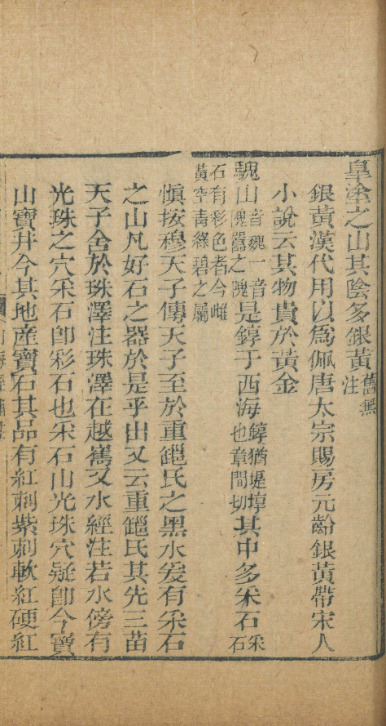 皇塗之山其陰多銀黃舊無注
銀黃漢代用以為佩唐太宗賜房元齡銀黃帶宋人
小說云其物貴於黃金
騩山音巍一音隗囂之隗是錞于西海錞猶堤埻也章閏切其中多采石采石
石有彩色者今雌黃空青綠碧之屬
慎按穆天子傳天子至於重䣛氏之黑水爰有采石
之山凡好石之器於是乎出又云重䣛氏其先三苗
天子舍於珠澤注珠澤在越嶲又水經注若水傍有
光珠之穴采石卽彩石也采石山光珠穴疑卽今寶
山寶井今其地産寶石其品有紅刺紫刺軟紅硬紅